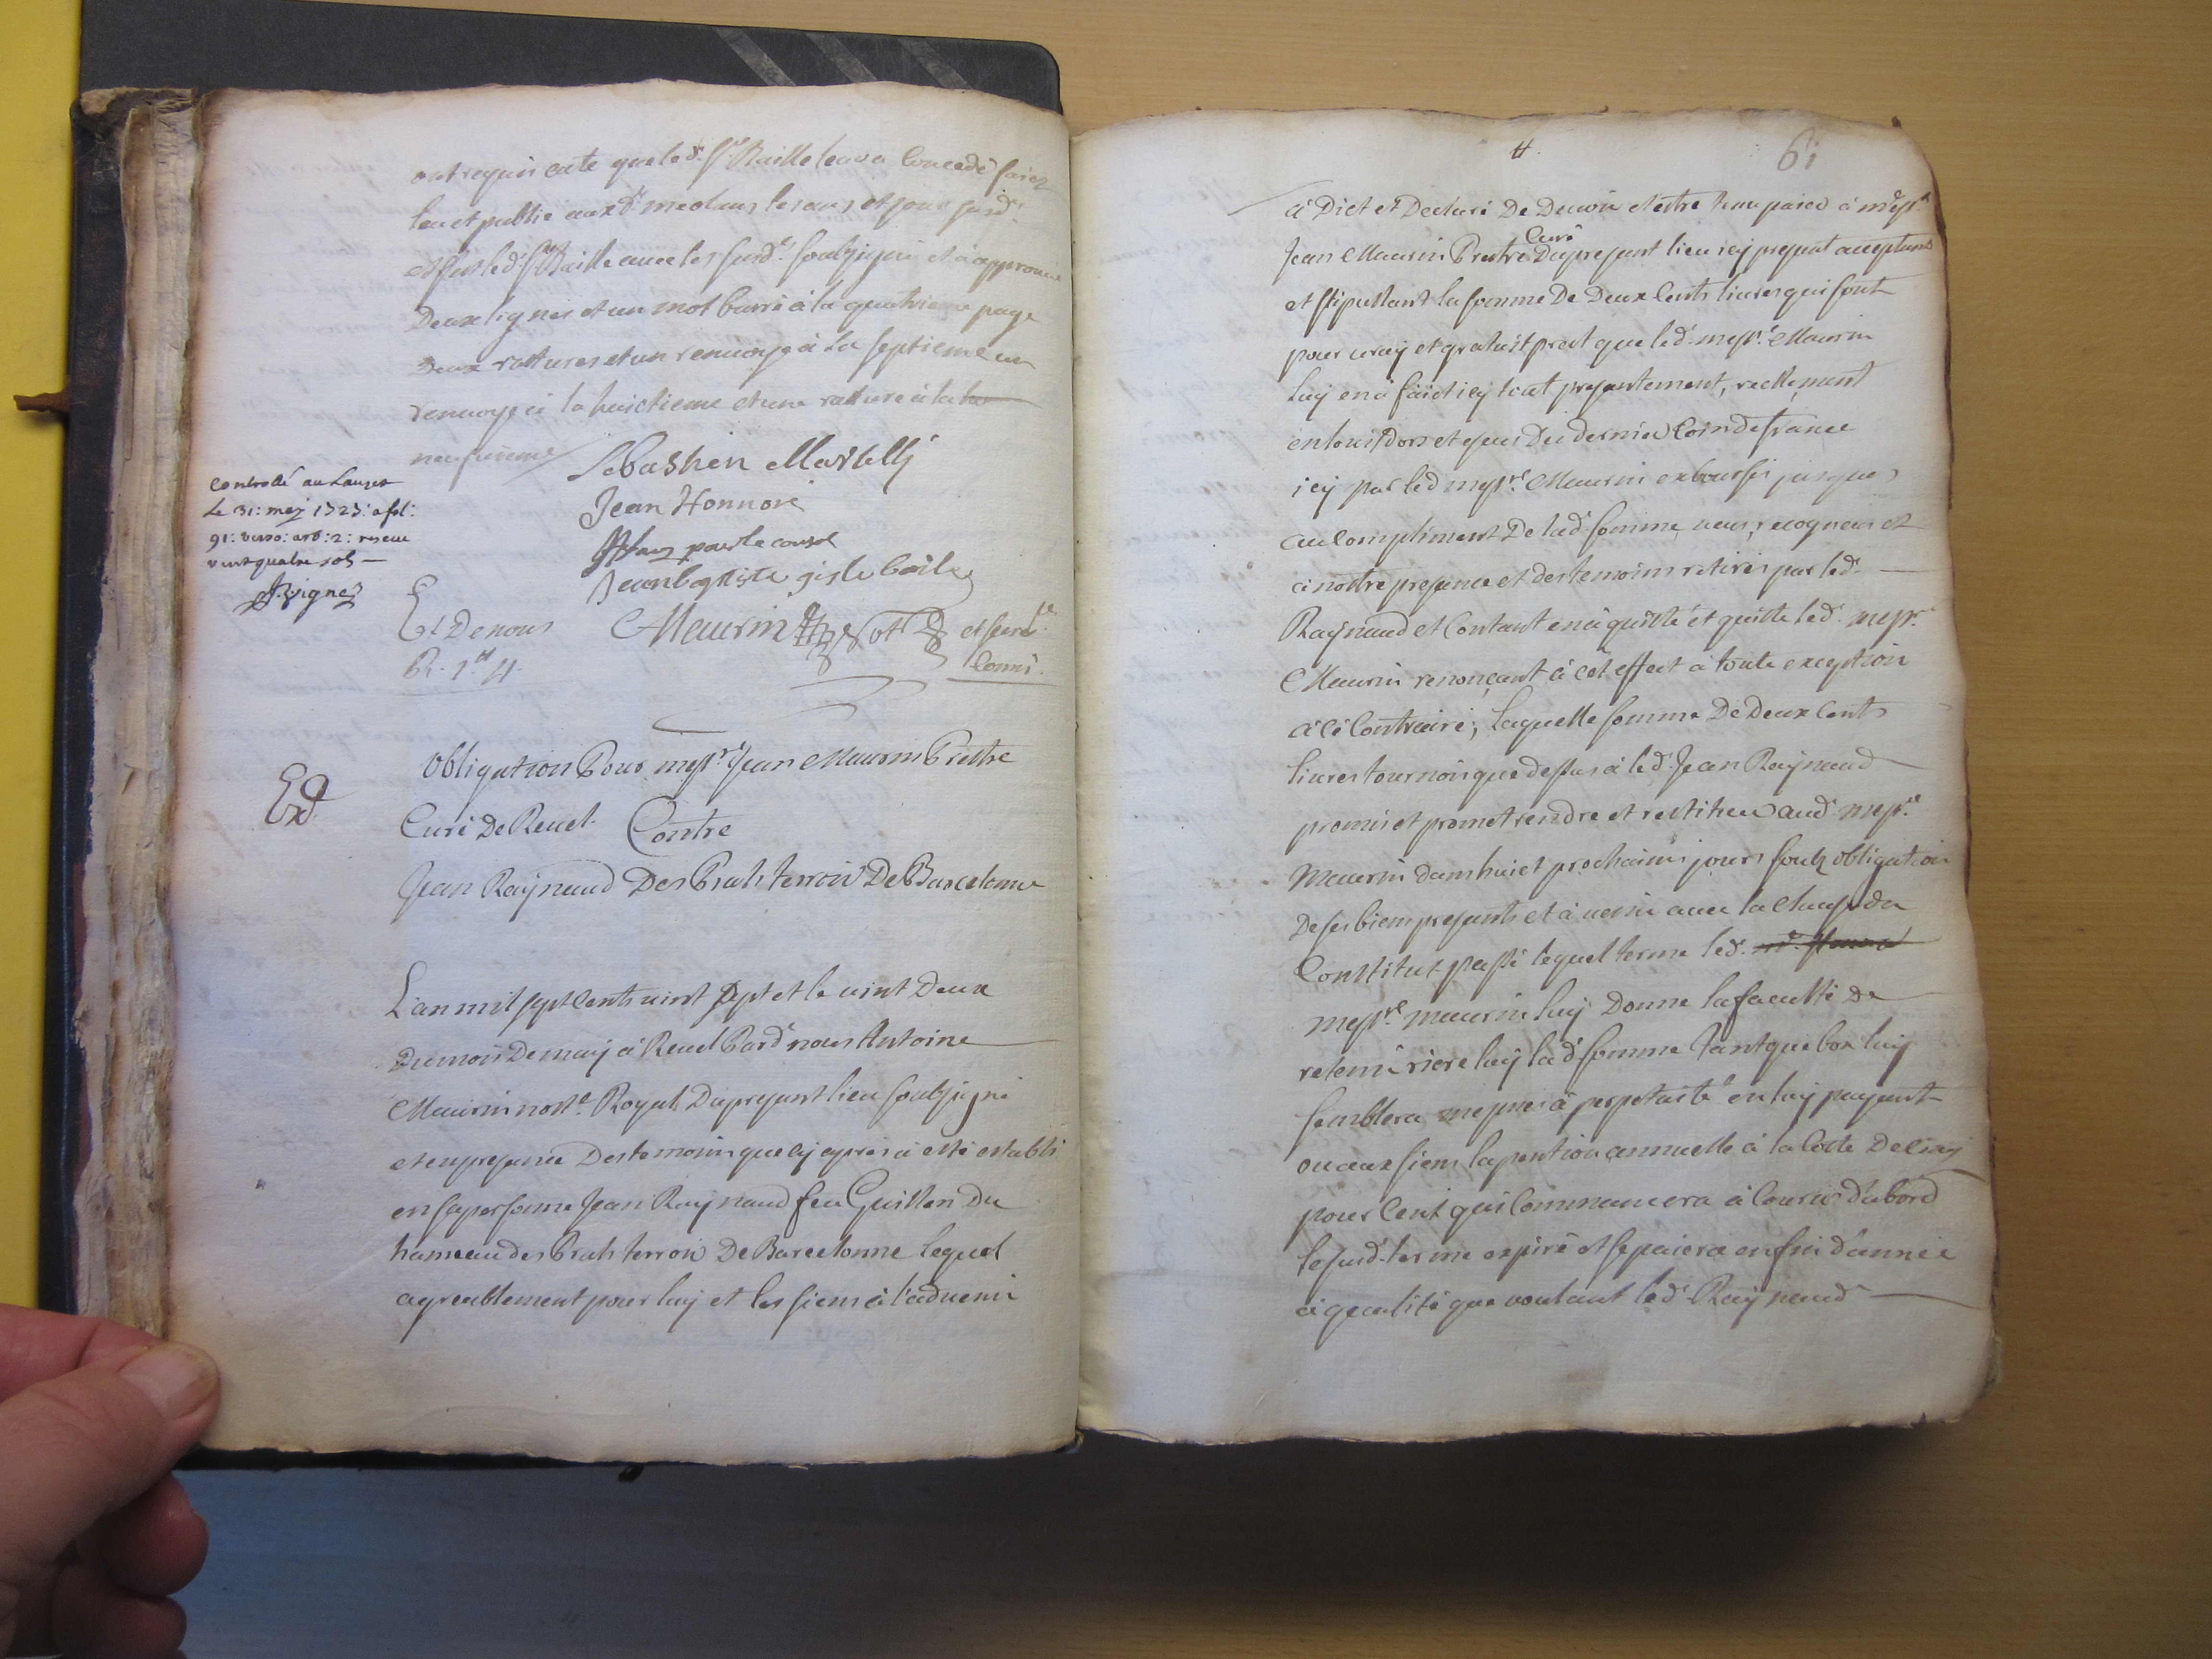 ont requis acte que led. Sr. Baille leur a Concedé faict
leu et publié auxd. meolans les ans et jour susd.
et s'est led. Sr. Baille avec les susd. soubsigné et à approuvé
Deux lignes et un mot barré à la quatrieme page
Deux rattures et un renvoye à la septieme un
renvoye à la huictieme et une ratture à la
neufvieme
Sebastien Martelly
Jean Honnoré
pour le consol
Jean baptiste gisle baile
Et De nous Maurin Notre et secre.
Comis.
R. 1 tt 4.
Controllé au Lauzet
Le 31: may 1727: a fol:
91: verso: art: 2: reseu
vint quatre sols
J. Vigne
Exd.
Obligation Pour messre. Jean Maurin Prestre
Curé De Revel. Contre
Jean Raynaud Des Prats terroir De Barcelonne
L'an mil sept Cents vint sept et le vint Deux
Du mois De may à Revel Pard. nous Antoine
Maurin notre. Royal Du present lieu soubsigné
et en presence Des temoins que cy apres à esté establi
en sa personne Jean Raynaud feu Guillen Du
hameau des Prats terroir De Barcelonne lequel
agreablement pour luy et les siens à l'advenir
tt. 61
à Dict et Declaré De Devoir et estre tenu paier à messre.
Jean Maurin Prestre Curé Du present lieu icy present acceptant
et stipullant la somme De Deux Cents livres qui sont
pour vray et gratuit prest que led. messre. Maurin
luy en à faict icy tout presentement, reellement
en louis d'ors et escus Du dernier Coin de france
icy par led. messre. Maurin exboursés jusques
au Compliment De lad. somme, veus, recogneus et
à nostre presence et des temoins retirés par led.
Raynaud et Contant en à quitté et quitte led. messre.
Maurin renonçant à cet effect à toute exception
à ce Contraire; Laquelle somme De Deux Cents
livres tournois que dessus à led. Jean Raynaud
promis et promet rendre et restituer aud. messre.
Maurin dans huict prochains jours soubz obligation
De ses biens presents et à venir avec la Clause de
Constitut passé lequel terme led.
messre. Maurin luy Donne la faculté De
retenir riere luy lad. somme tant que bon luy
semblera mesmes à perpetuité en luy payant
ou aux siens la pention annuelle à la Cotte De cinq
pour Cent qui Commancera à Courir d'abord
le susd. terme expiré et se paiera en fin d'année
à qualité que voulant led. Raynaud